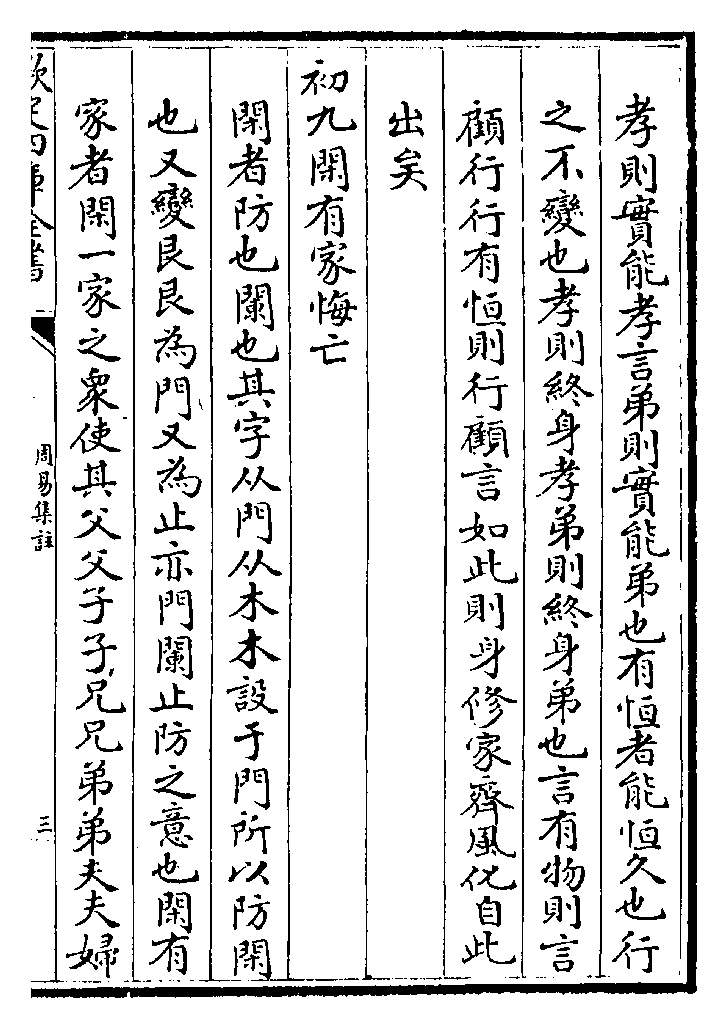 孝則實能孝言弟則實能弟也有恒者能恒久也行
之不變也孝則終身孝弟則終身弟也言有物則言
顧行行有恒則行顧言如此則身修家齊風化自此
出矣
初九閑有家悔亡
閑者防也闌也其字从門从木木設于門所以防閑
也又變艮艮為門又為止亦門闌止防之意也閑有
家者閑一家之衆使其父父子子兄兄弟弟夫夫婦
欽定四庫全書
周易集註
三